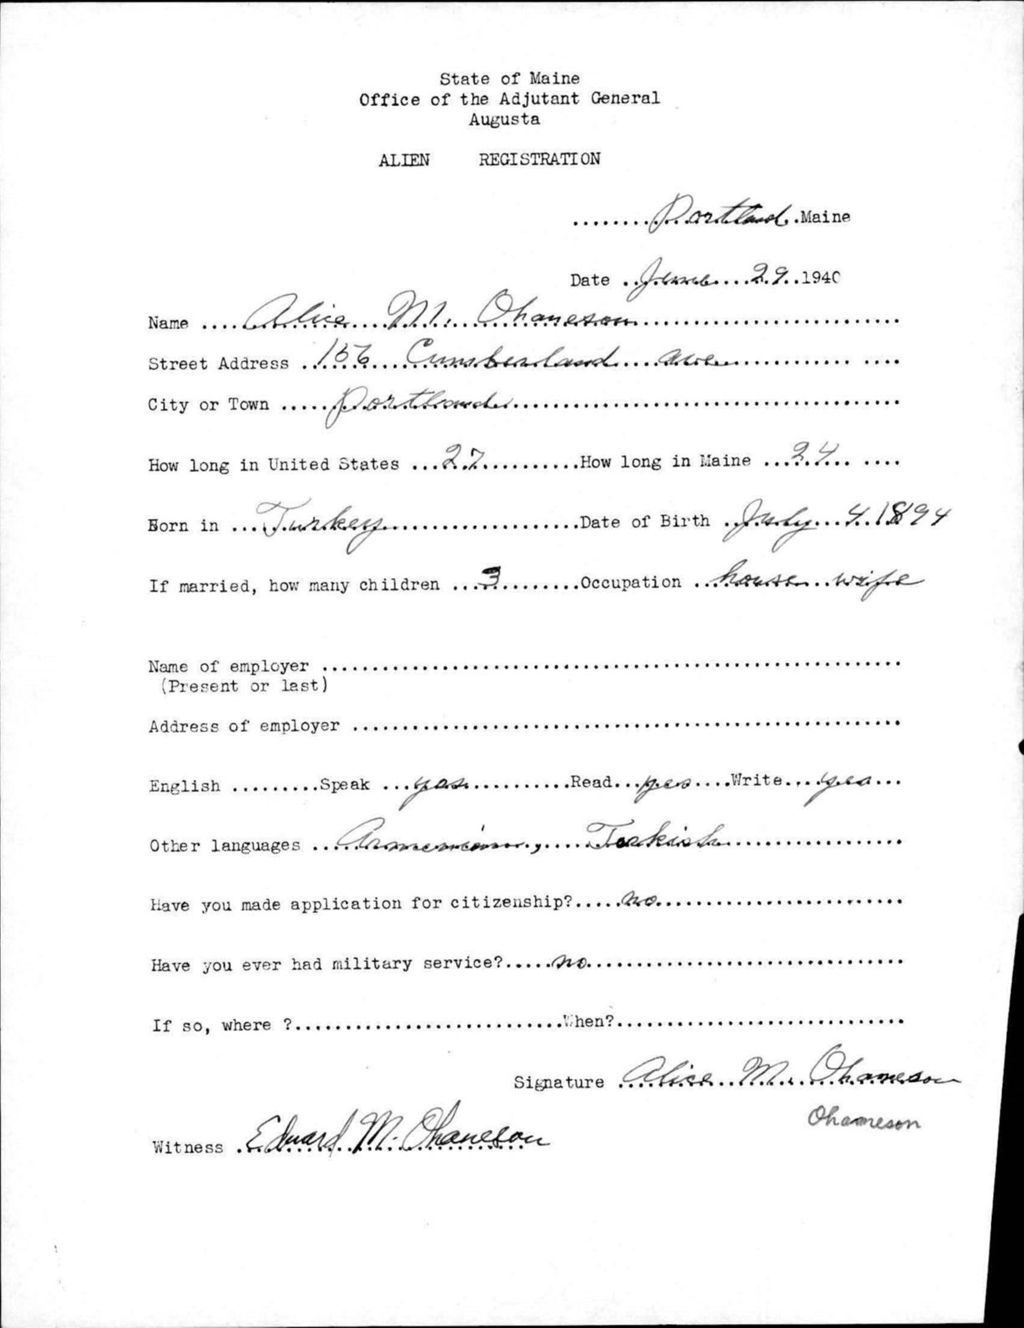 State of Maine
Office of the Adjutant General
Augusta
ALIEN REGISTRATION
........Portland.Maine
Date ..June....29..1940
Name ....Alice....M....Ohaneson................................
Street Address .156..Cumberland....ave............... ....
City or Town .....Portland................................................
How long in United States ...27..........How long in Maine ...24... ....
Born in ...Turkey.......................Date of Birth .July...4.1894
If married, how many children ...3.........Occupation ..house...wife
Name of employer ..........................................................
(Present or last)
Address of employer .......................................................
English .........Speak ...yes............Read...yes....Write...yes...
Other languages ..Armenian,.....Terkish..................
Have you made application for citizenship?.....no.........................
Have you ever had military service?.....no................................
If so, where ?...........................When?.............................
Signature .Alice..M....Ohameson
Ohameson
Witness .Edward.M.Ohaneson